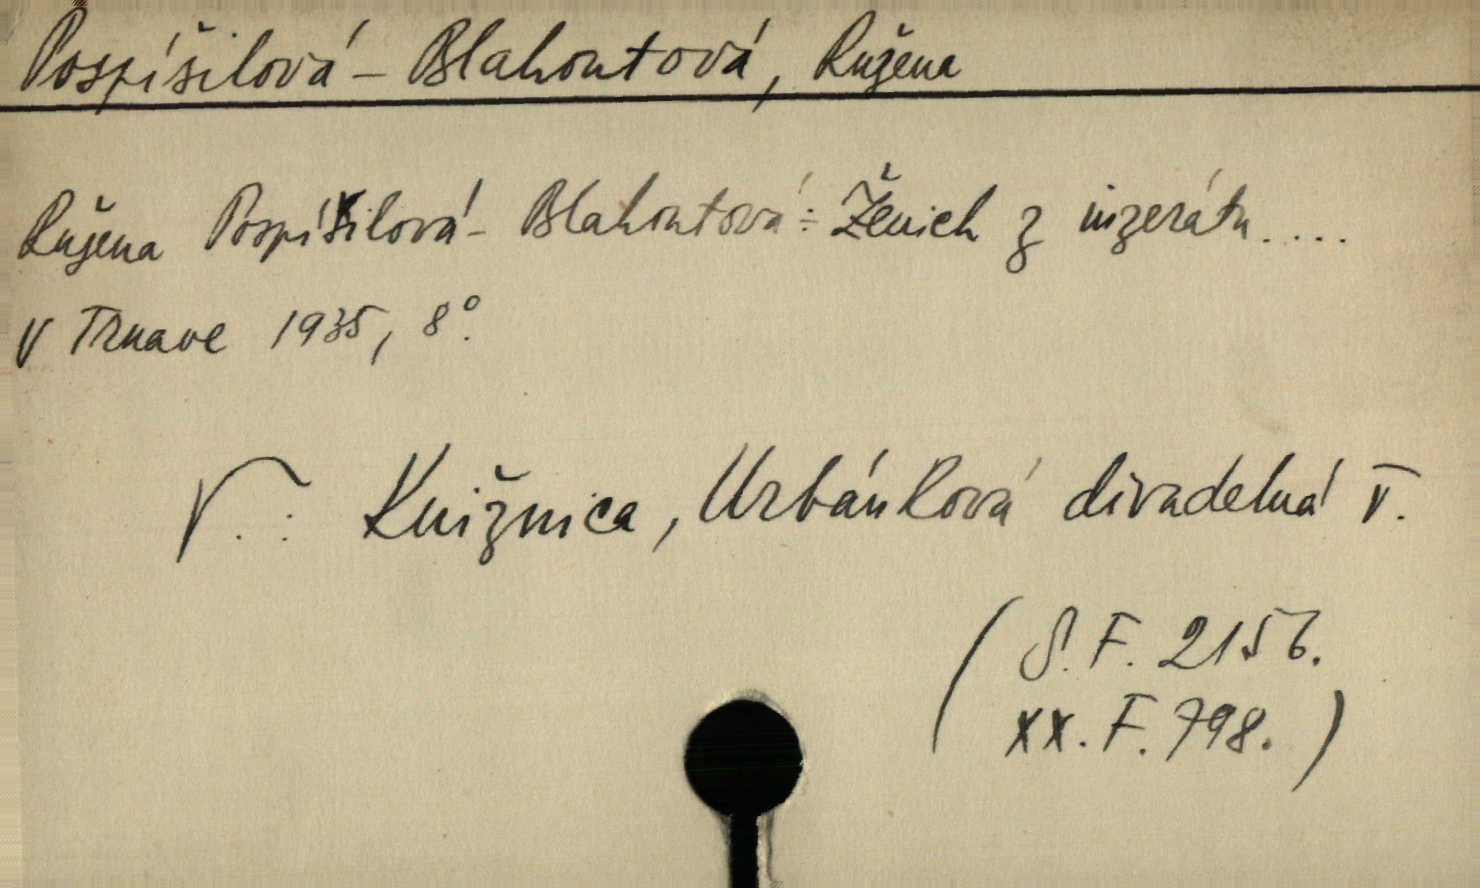 Pospíšilová - Blahontová, Ružena
Ružena Pospíšilová - Blahontová: Ženich z inzerátu.....
V Trnave 1935, 8°.
V.: Knižnica, Urbánková divadelná V.
(S. F. 2156.
XX. F. 798.)